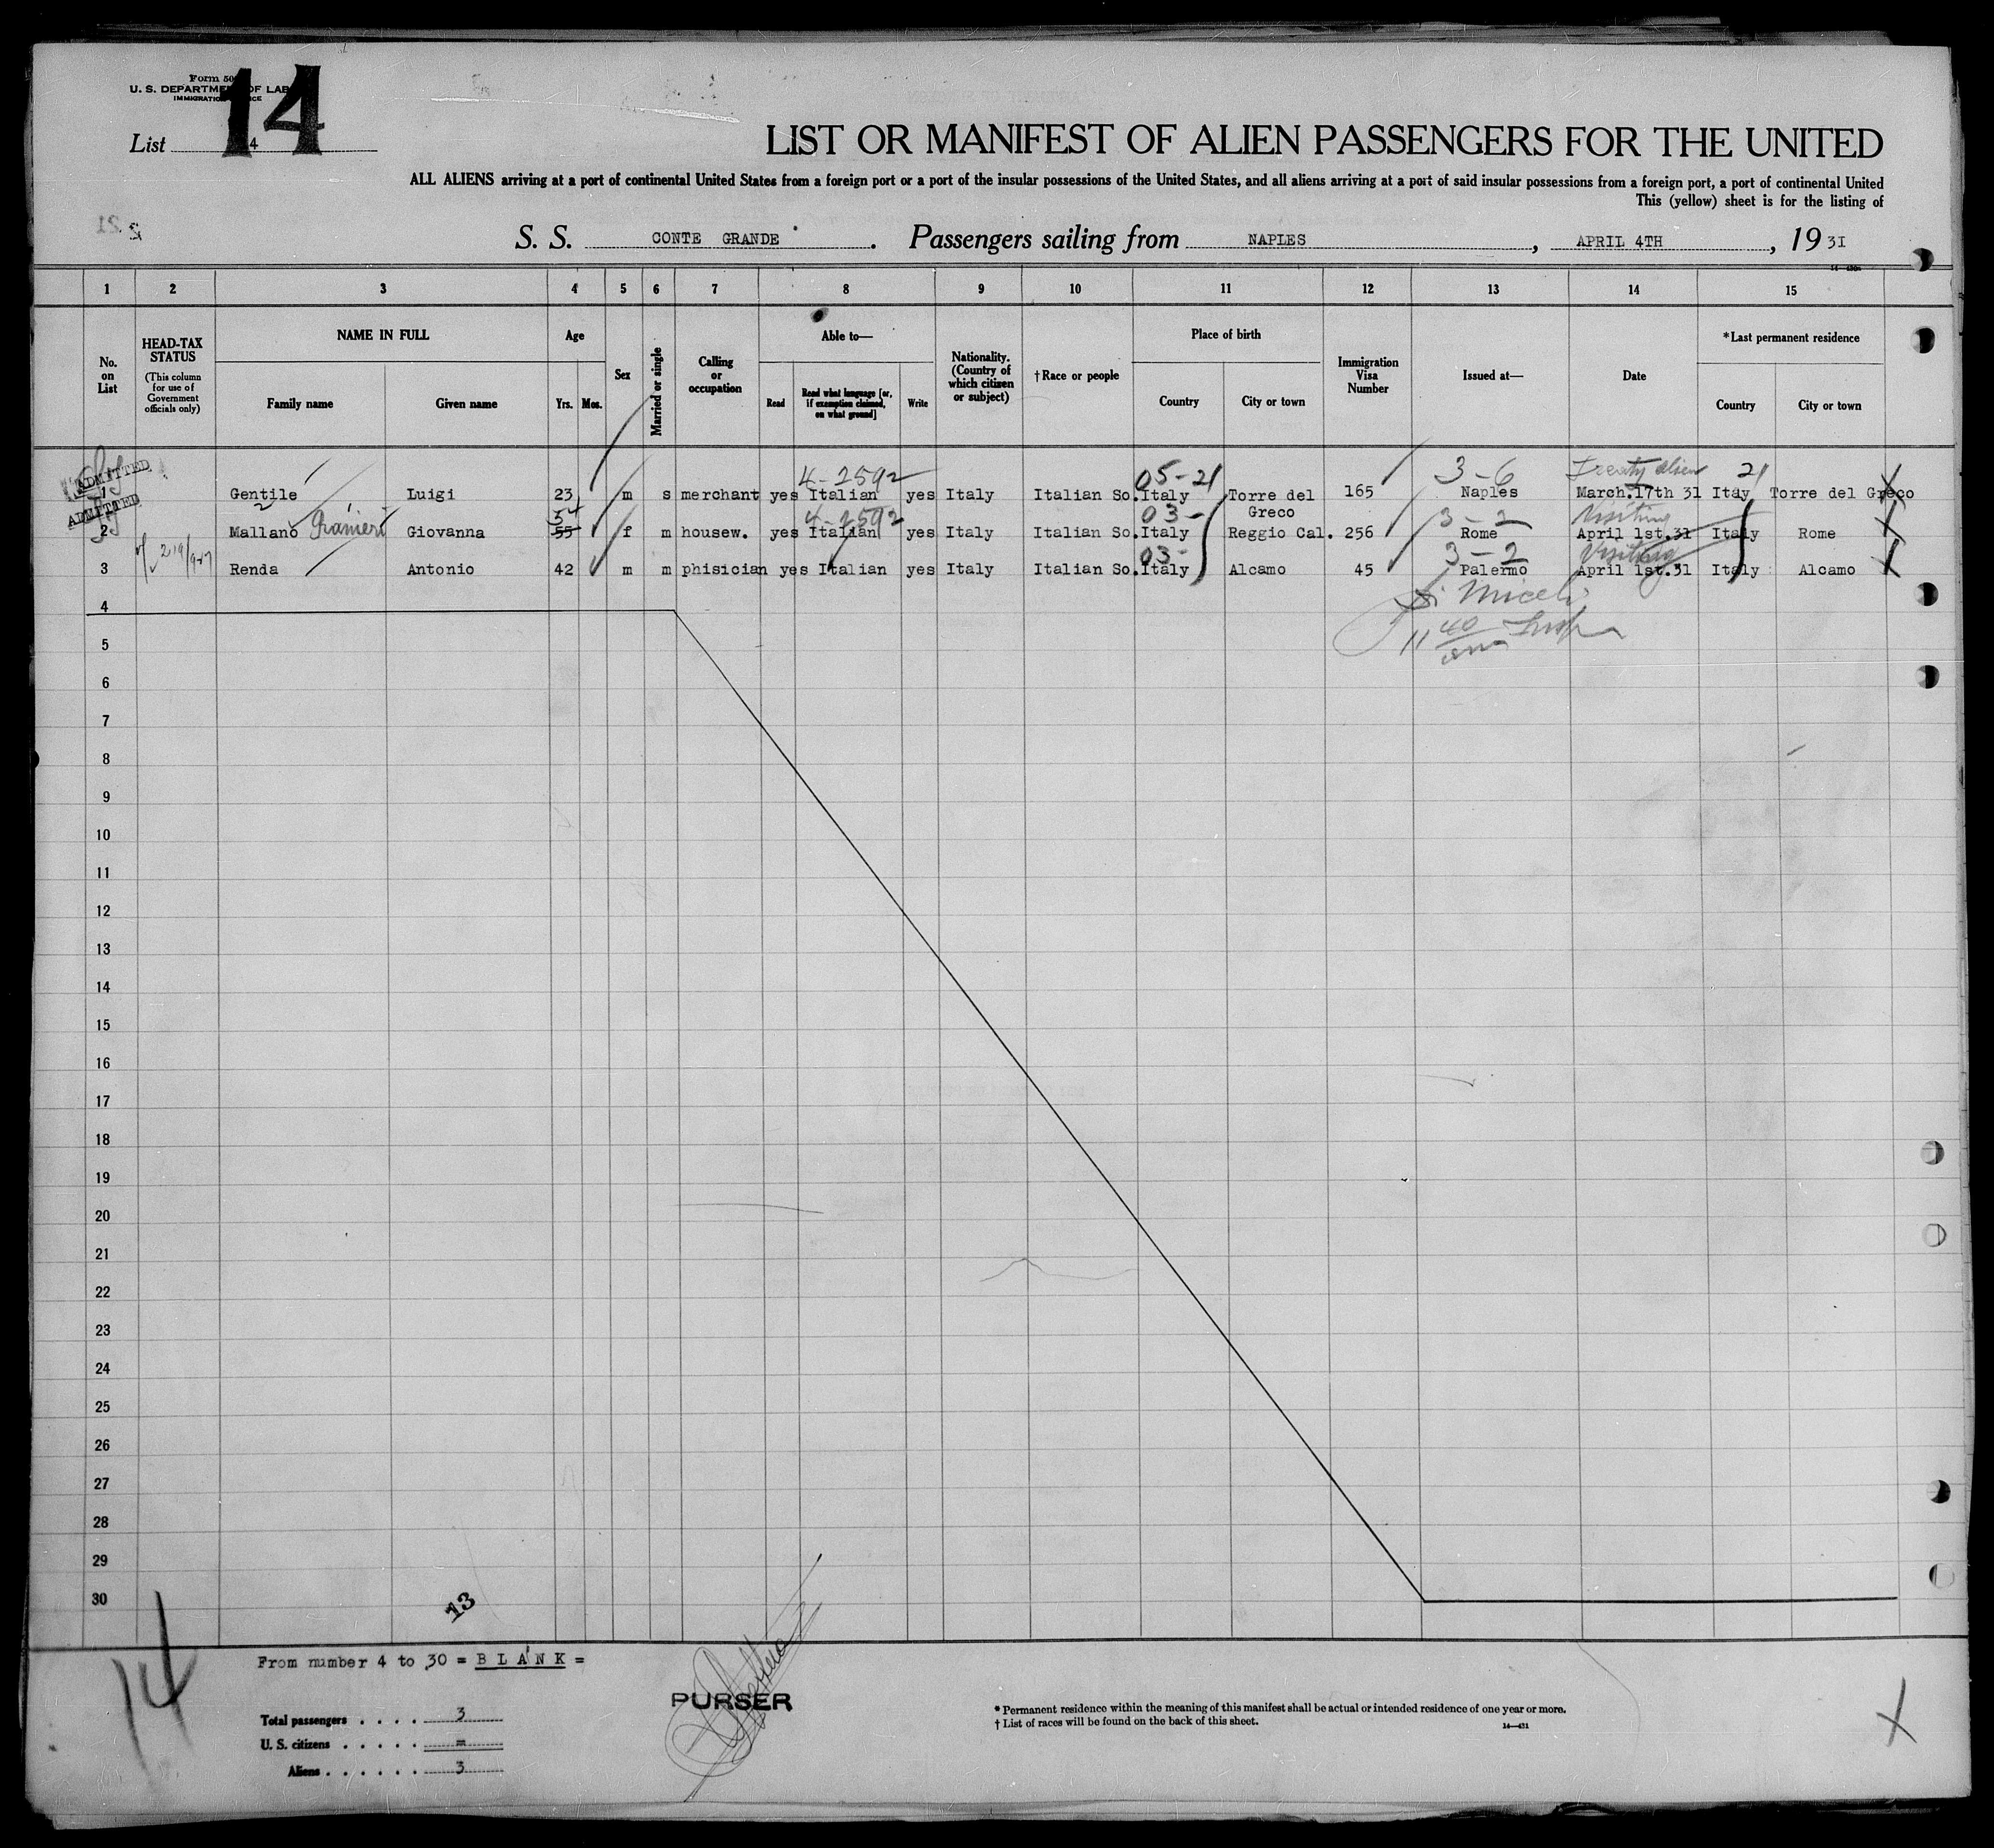 Form 50
U. S. DEPARTMENT OF LAB
IMMIGRATION
14
List 4
LIST OR MANIFEST OF ALIEN PASSENGERS FOR THE UNITED
ALL ALIENS arriving at a port of continental United States from a foreign port or a port of the insular possessions of the United States, and all aliens arriving at a port of said insular possessions from a foreign port, a port of continental United
This (yellow) sheet is for the listing of
S. S. CONTE GRANDE . Passengers sailing from NAPLES , APRIL 4TH , 1931
1 2 3 4 5 6 7 8 9 10 11 12 13 14 15
No. on List
HEAD-TAX STATUS
(This column for use of Government officials only)
NAME IN FULL
Family name Given name
Age
Yrs. Mos.
Sex
Married or single
Calling or occupation
Able to—
Read Read what language [or, if exemption claimed, on what ground] Write
Nationality. (Country of which citizen or subject)
†Race or people
Place of birth
Country City or town
Immigration Visa Number
Issued at—
Date
*Last permanent residence
Country City or town
ADMITTED 4-2592 05-21 3-6 Treaty alien 21
1 Gentile Luigi 23 m s merchant yes Italian yes Italy Italian So. Italy Torre del Greco 165 Naples March.17th 31 Itay Torre del Greco
ADMITTED 54 4-2592 03- 3-2 Visiting
2 Mallano Ranieri Giovanna 55 f m housew. yes Italian yes Italy Italian So. Italy Reggio Cal. 256 Rome April 1st.31 Italy Rome
03- 3-2 Visiting
3 Renda Antonio 42 m m phisician yes Italian yes Italy Italian So. Italy Alcamo 45 Palermo April 1st.31 Italy Alcamo
Miceli
11 40 Insp
4
5
6
7
8
9
10
11
12
13
14
15
16
17
18
19
20
21
22
23
24
25
26
27
28
29
30
13
14
From number 4 to 30 = BLANK =
Total passengers . . . . 3
U. S. citizens . . . . . =
Aliens . . . . . . 3
PURSER
* Permanent residence within the meaning of this manifest shall be actual or intended residence of one year or more.
† List of races will be found on the back of this sheet.
14—431